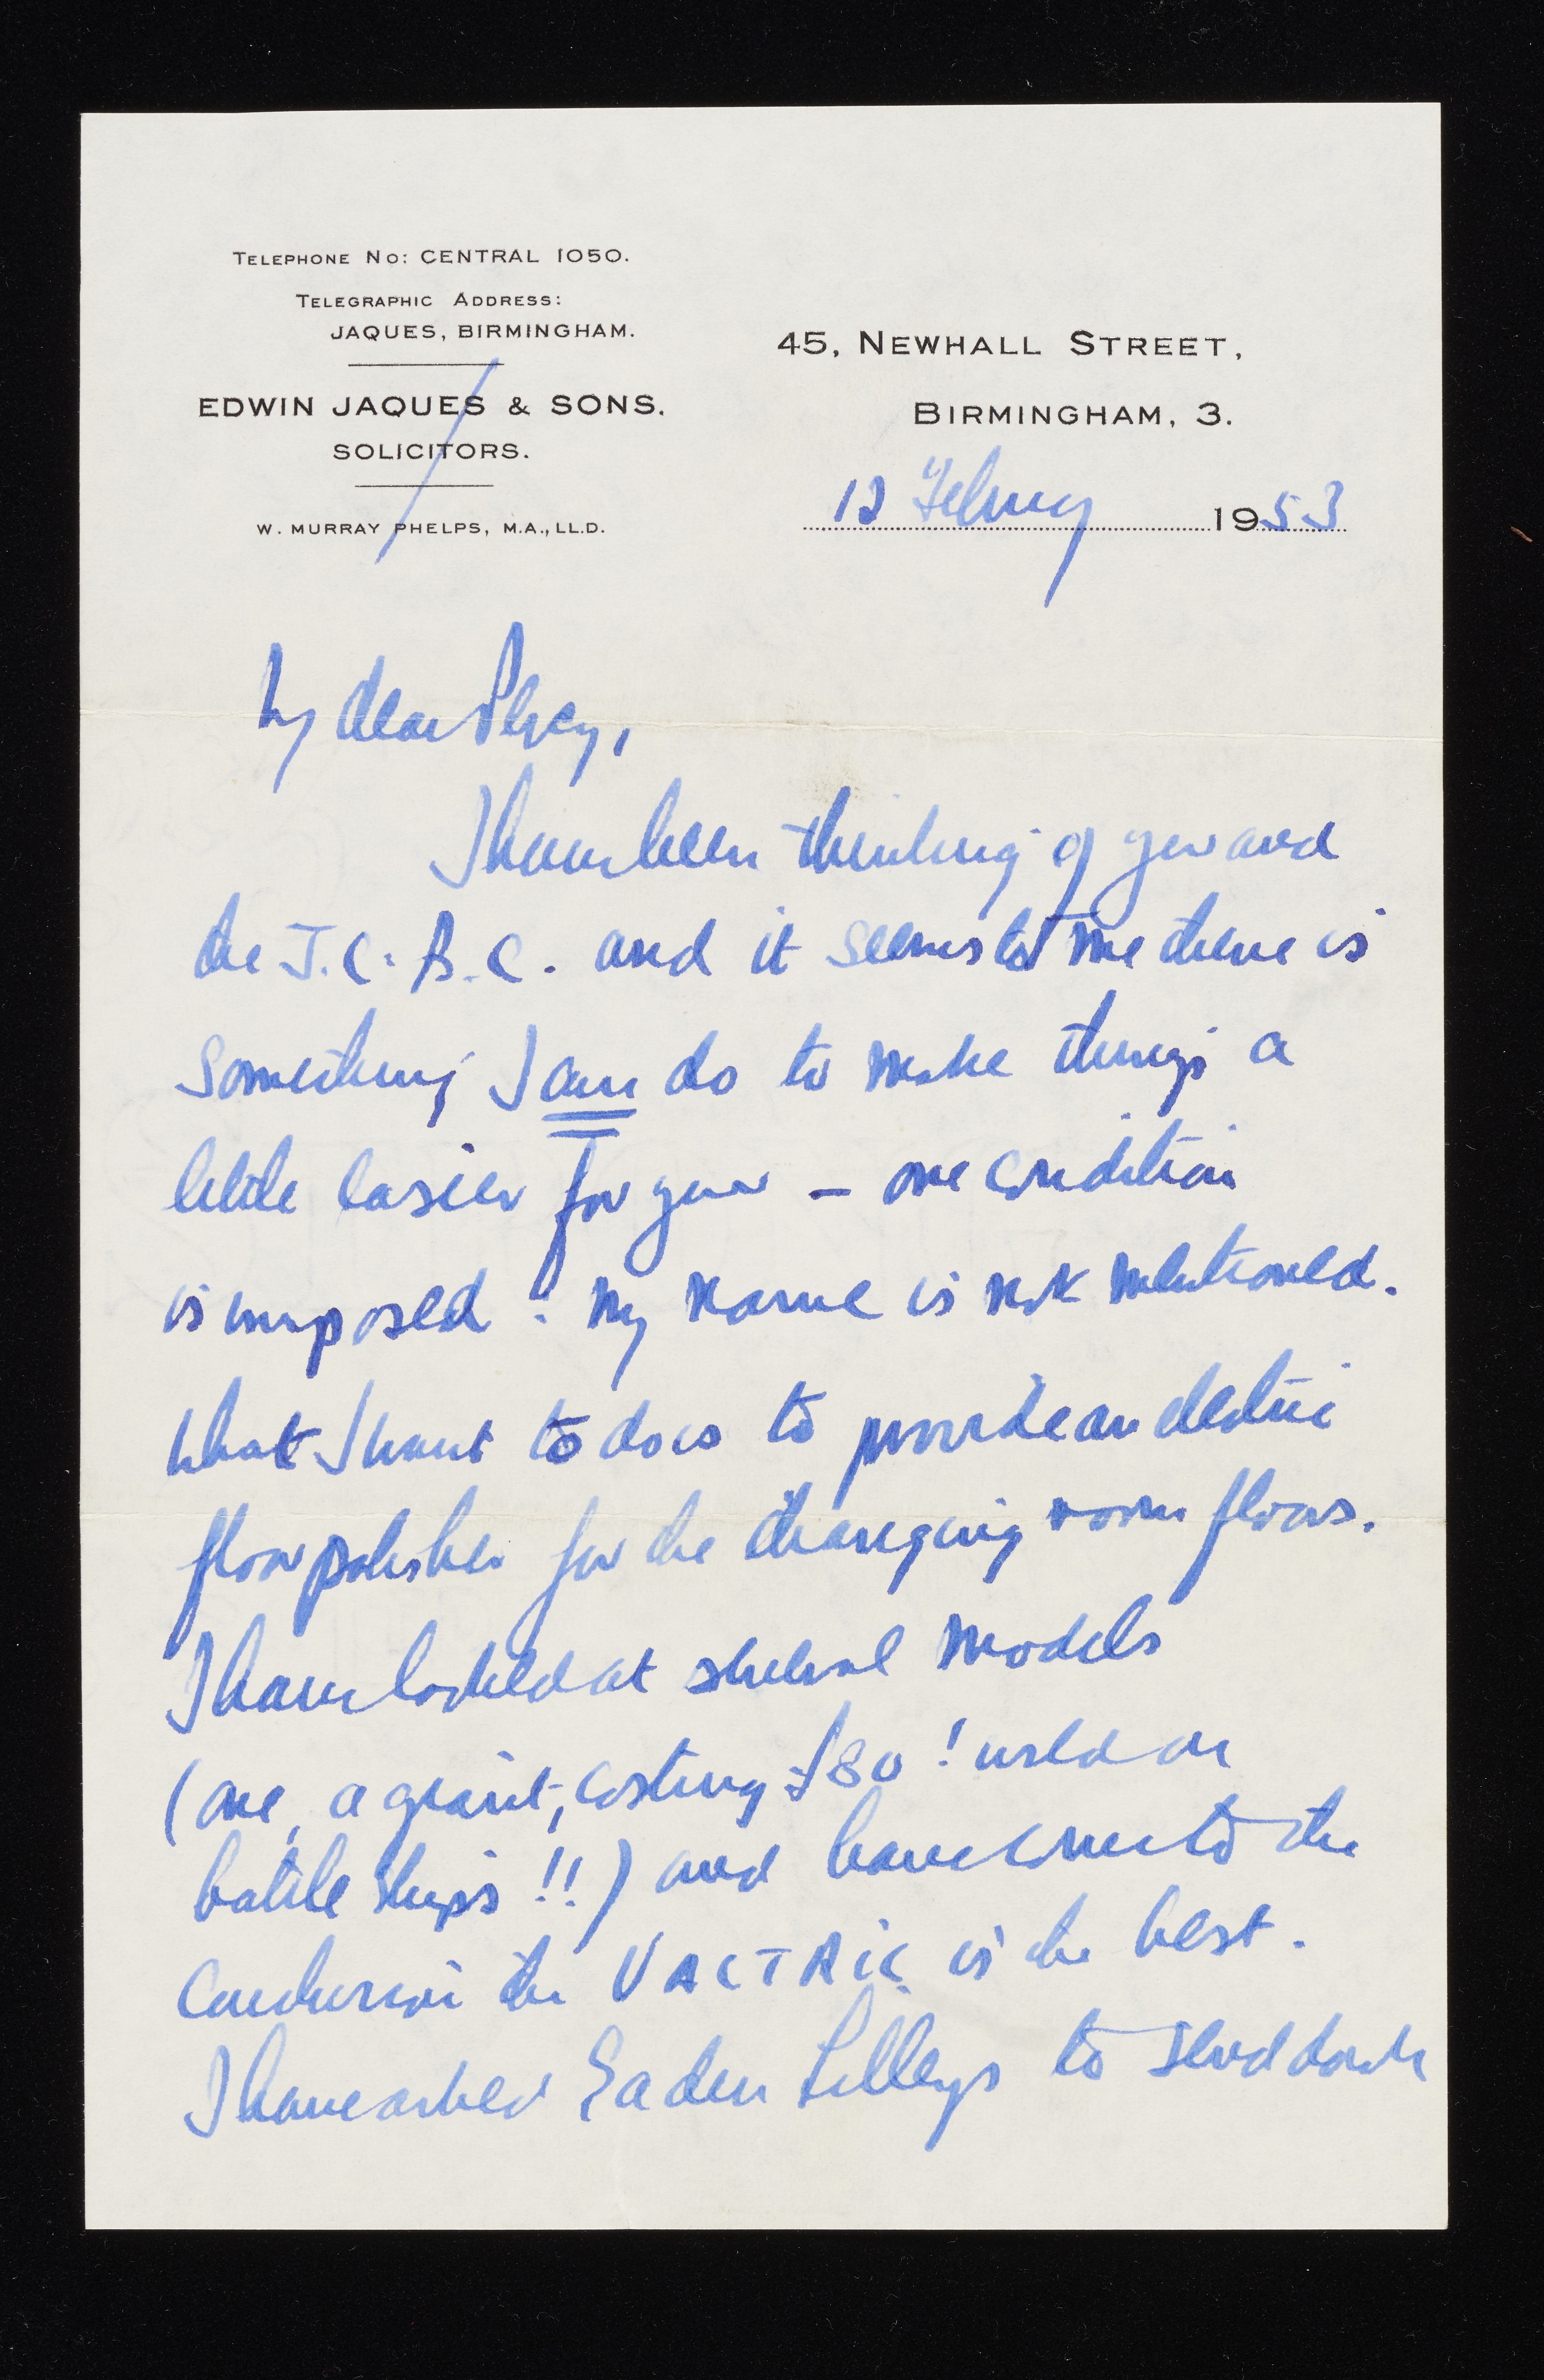 TELEPHONE NO: CENTRAL 1050.
TELEGRAPHIC ADDRESS:
JAQUES, BIRMINGHAM.
EDWIN JAQUES & SONS.
SOLICITORS.
W. MURRAY PHELPS, M.A., LL.D.
45, NEWHALL STREET,
BIRMINGHAM, 3.
12 February 1953
My dear Percy,
I have been thinking of you and
the J.C.B.C. and it seems to me there is
something I can do to make things a
little easier for you – one condition
is imposed : my name is not mentioned.
What I want to do is to provide an electric
floor polisher for the changing room floors.
I have looked at several models
(one, a giant, costing £80! used on
battle ships!!) and have come to the
conclusion the VACTRIC is the best.
I have asked Eaden Lilleys to send down